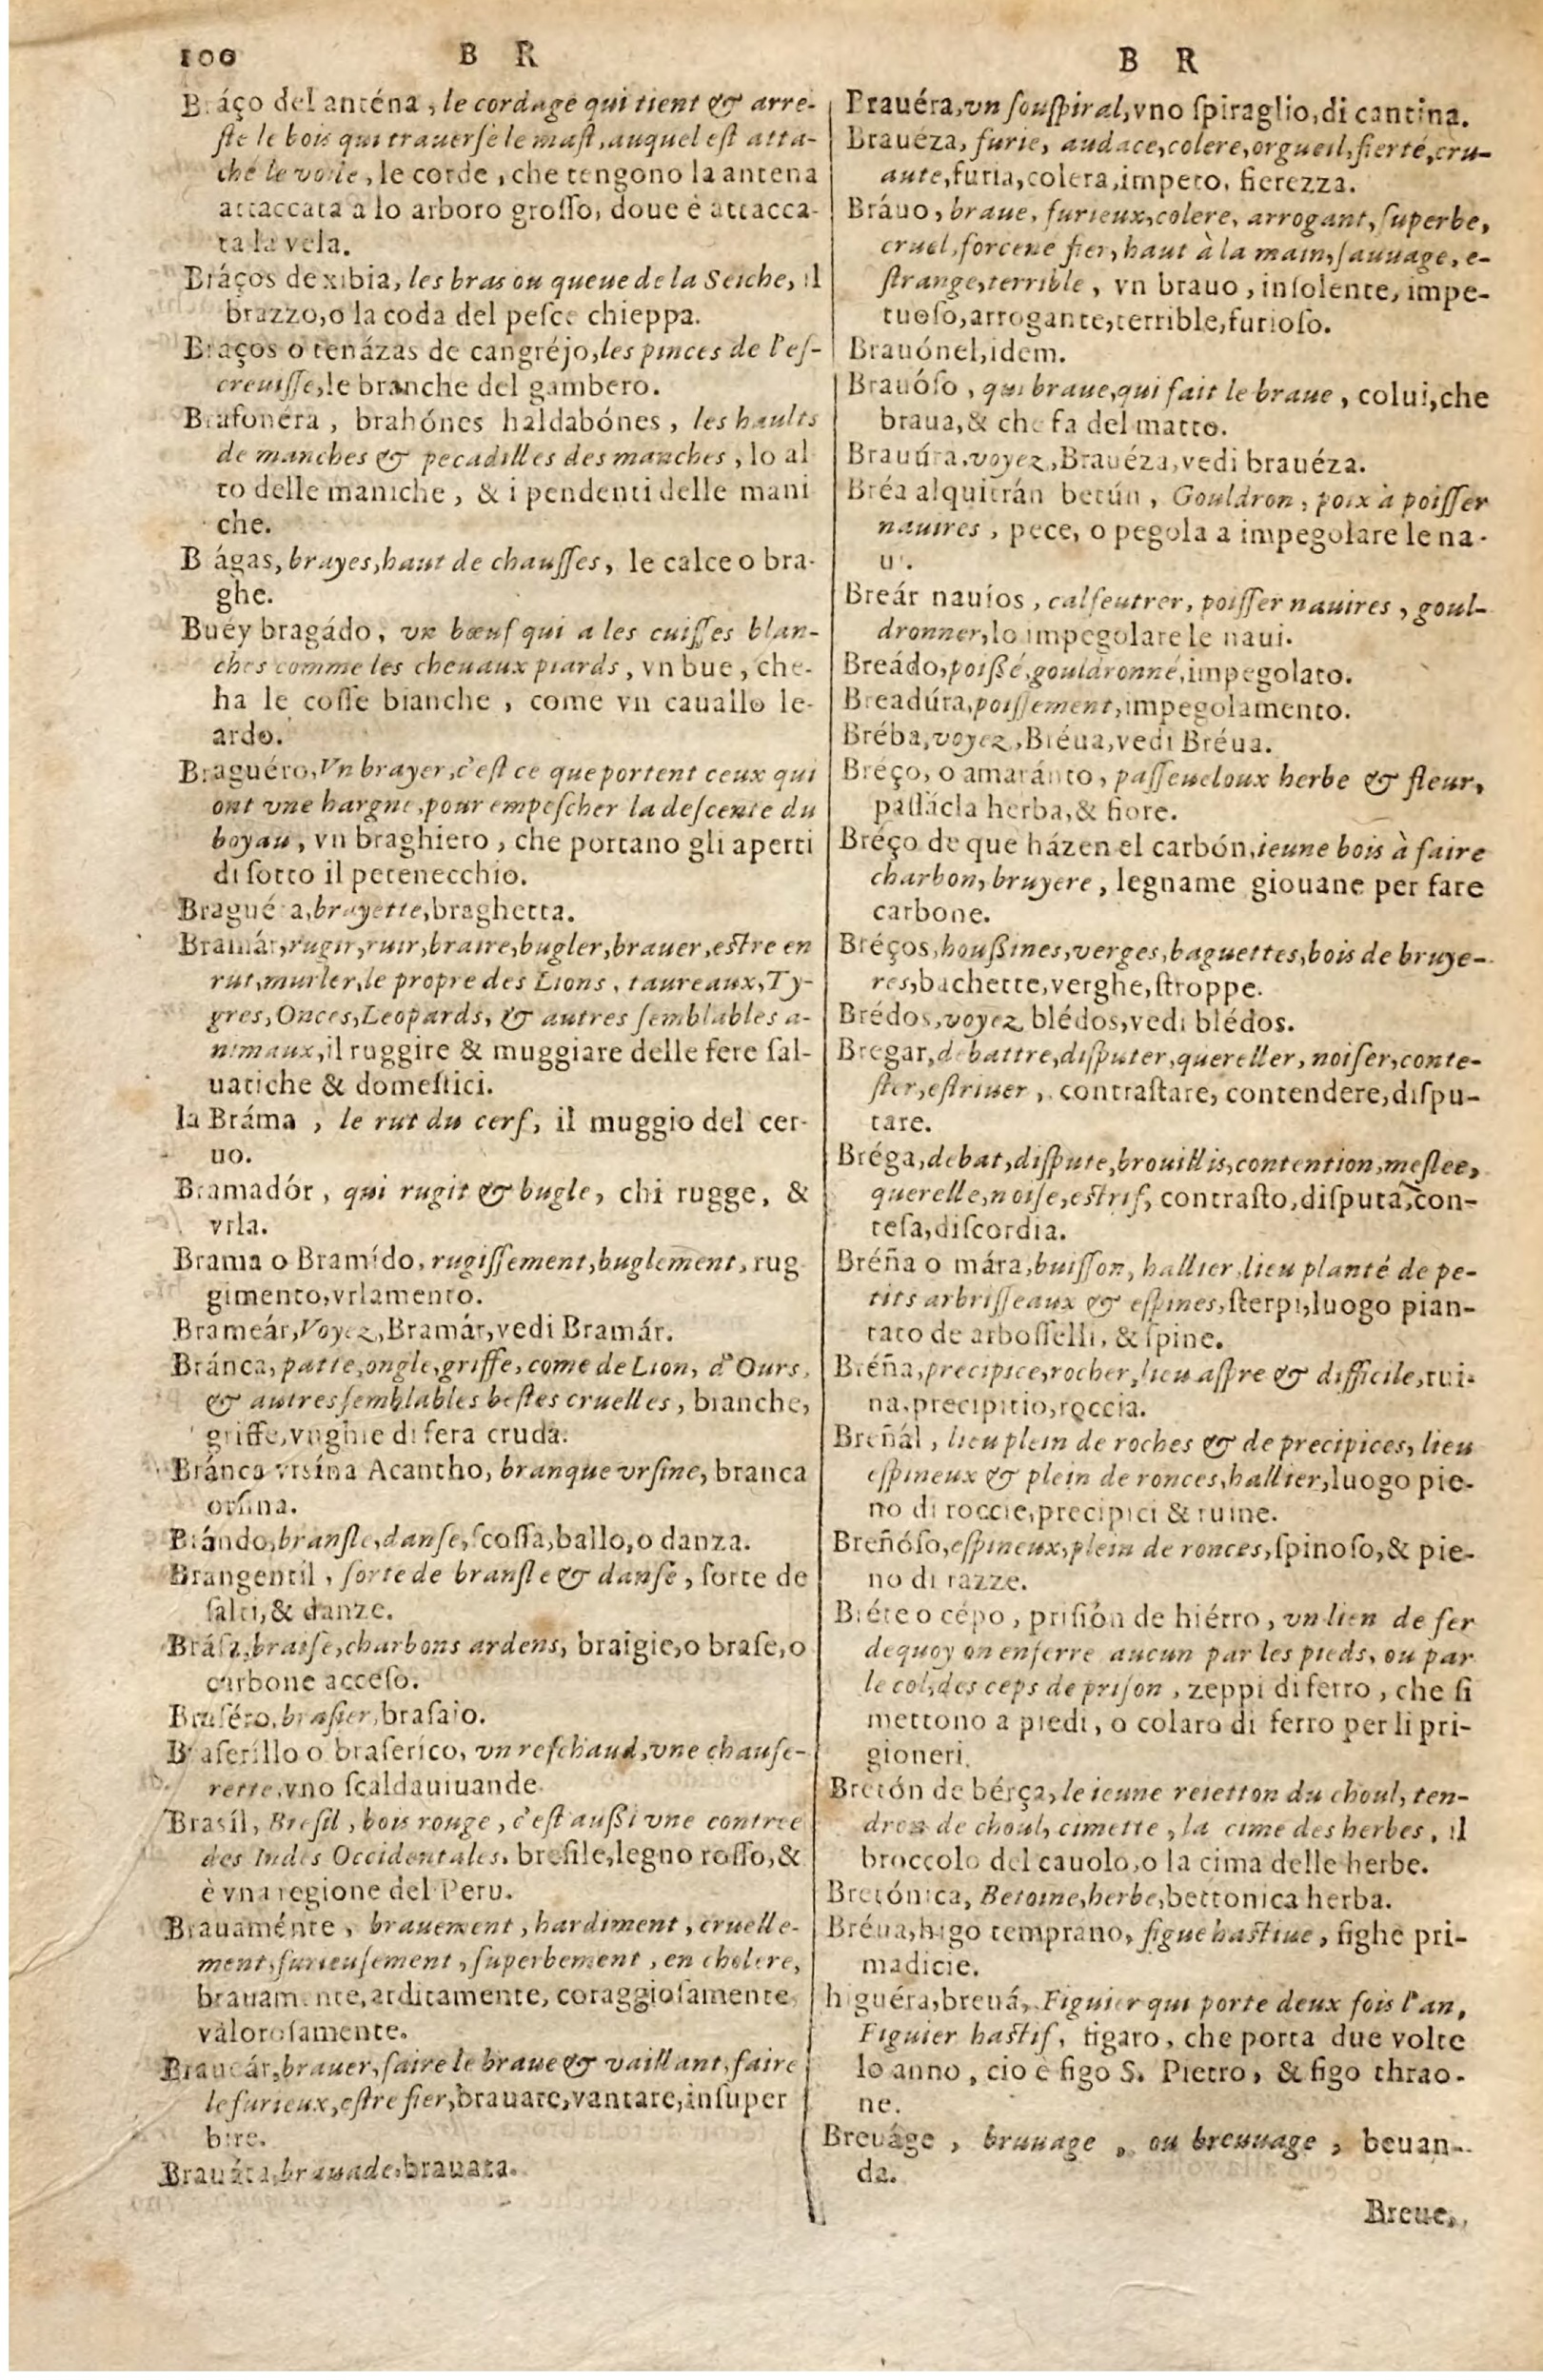 100 B R
Bráço del anténa, le cordage qui tient & arre-
ste le bois qui trauerse le mast, auquel est atta-
ché le voile, le corde, che tengono la antena
attaccata a lo arboro grosso, doue è attacca-
ta la vela.
Bráços de xibia, les bras ou queue de la Seiche, il
brazzo, o la coda del pesce chieppa.
Braços o tenázas de cangréjo, les pinces de l'es-
creuisse, le branche del gambero.
Brafonéra, brahónes haldabónes, les haults
de manches & pecadilles des manches, lo al
to delle maniche, & i pendenti delle mani
che.
B ágas, brayes, haut de chausses, le calce o bra-
ghe.
Buéy bragádo, vn bœuf qui a les cuisses blan-
ches comme les cheuaux piards, vn bue, che-
ha le cosse bianche, come vn cauallo le-
ardo.
Braguéro, Vn brayer, c'est ce que portent ceux qui
ont vne hargne, pour empescher la descente du
boyau, vn braghiero, che portano gli aperti
di sotto il petenecchio.
Bragué a, brayette, braghetta.
Bramár, rugir, ruir, braire, bugler, brauer, estre en
rut, murler, le propre des Lions, taureaux, Ty-
gres, Onces, Leopards, & autres semblables a-
nimaux, il ruggire & muggiare delle fere sal-
uatiche & domestici.
la Bráma, le rut du cerf, il muggio del cer-
uo.
Bramadór, qui rugit & bugle, chi rugge, &
vrla.
Brama o Bramído, rugissement, buglement, rug
gimento, vrlamento.
Brameár, Voyez, Bramár, vedi Bramár.
Bránca, patte, ongle, griffe, come de Lion, d'Ours,
& autres semblables bestes cruelles, bianche,
griffe, vnghie di fera cruda.
Bránca vrsína Acantho, branque vrsine, branca
orsina.
Brándo, bransle, danse, scossa, ballo, o danza.
Brangentil, sorte de bransle & danse, sorte de
salti, & danze.
Brása, braise, charbons ardens, braigie, o brase, o
carbone acceso.
Braséro, brasier, brasaio.
B aserillo o braserico, vn reschaud, vne chaufe-
rette, vno scaldauiuande.
Brasíl, Bresil, bois rouge, c'est außi vne contree
des Indes Occidentales, bresile, legno rosso, &
è vna regione del Peru.
Brauaménte, brauement, hardiment, cruelle-
ment, furieusement, superbement, en cholere,
brauamente, arditamente, coraggiosamente,
valorosamente.
Braueár, brauer, faire le braue & vaillant, faire
le furieux, estre fier, brauare, vantare, insuper
bire.
Brauáta, brauade, brauata.
B R
Brauéra, vn souspiral, vno spiraglio, di cantina.
Brauéza, furie, audace, colere, orgueil, fierté, cru-
aute, furia, colera, impeto, fierezza.
Bráuo, braue, furieux, colere, arrogant, superbe,
cruel, forcené fier, haut à la main, sauuage, e-
strange, terrible, vn brauo, insolente, impe-
tuoso, arrogante, terrible, furioso.
Brauónel, idem.
Brauóso, qui braue, qui fait le braue, colui, che
braua, & che fa del matto.
Brauúra, voyez, Brauéza, vedi brauéza.
Bréa alquitrán betún, Gouldron, poix à poisser
nauires, pece, o pegola a impegolare le na-
ui.
Breár nauíos, calfeutrer, poisser nauires, goul-
dronner, lo impegolare le naui.
Breádo, poißé, gouldronné, impegolato.
Breadúra, poissement, impegolamento.
Bréba, voyez, Bréua, vedi Bréua.
Bréço, o amaránto, passeueloux herbe & fleur,
passácla herba, & fiore.
Bréço de que házen el carbón, ieune bois à faire
charbon, bruyere, legname giouane per fare
carbone.
Bréços, houßines, verges, baguettes, bois de bruye-
res, bachette, verghe, stroppe.
Brédos, voyez blédos, vedi blédos.
Bregar, debattre, disputer, quereller, noiser, conte-
ster, estriuer, contrastare, contendere, dispu-
tare.
Bréga, debat, dispute, brouillis, contention, meslee,
querelle, noise, estrif, contrasto, disputa, con-
tesa, discordia.
Bréña o mára, buisson, hallier, lieu planté de pe-
tits arbrisseaux & espines, sterpi, luogo pian-
tato de arbosselli, & spine.
Bréña, precipice, rocher, lieu aspre & difficile, rui-
na, precipitio, roccia.
Breñál, lieu plein de roches & de precipices, lieu
espineux & plein de ronces, hallier, luogo pie-
no di roccie, precipici & ruine.
Breñóso, espineux, plein de ronces, spinoso, & pie-
no di razze.
Bréte o cépo, prisión de hiérro, vn lien de fer
dequoy on enferre aucun par les pieds, ou par
le col, des ceps de prison, zeppi di ferro, che si
mettono a piedi, o colaro di ferro per li pri-
gioneri.
Bretón de bérça, le ieune reietton du choul, ten-
dron de choul, cimette, la cime des herbes, il
broccolo del cauolo, o la cima delle herbe.
Bretónica, Betoine, herbe, bettonica herba.
Bréua, higo temprano, figue hastiue, fighe pri-
madicie.
higuéra, breuá, Figuier qui porte deux fois l'an,
Figuier hastif, figaro, che porta due volte
lo anno, cio è figo S. Pietro, & figo thrao-
ne.
Breuáge, bruuage, ou breuuage, beuan-
da.
Breue,